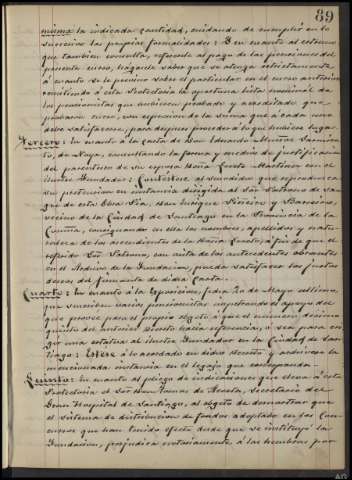 89
misma la indicada cantidad, cuidando de cumplir en lo
sucesivo las propias formalidades: Y en cuanto al estremo
que tambien consulta, referente al pago de las pensiones del
presente curso, hágasele saber que se atenga estrictamente
á cuanto se le previno sobre el particular en el curso anterior
remitiendo á esta Protectoria la oportuna lista nominal de
los pensionistas que hubiesen probado y acreditado que
probaron curso, con espresion de la suma que á cada uno
debe satisfacerse, para despues proceder á lo que hubiere lugar.
Tercero: En cuanto á la carta de Don Eduardo Muñoz
de Noya, consultando la forma y medio de justificacion
del parentesco de su esposa Doña Loreto Martinez con el
ilustre Fundador: Contéstese al referido que reproduzca
su pretension en instancia dirigida al Sor Patrono de san-
gre de esta Obra Pía, Don Enrique Piñeiro y Barreiro,
vecino de la Ciudad de Santiago en la Provincia de la
Coruña, consignando en ella los nombres, apellidos y natu-
raleza de los ascendientes de la Doña Loreto, á fin de que el
referido Sor Patrono, con vista de los antecedentes obrantes
en el Archivo de la Fundacion, pueda satisfacer los justos
deseos del firmante de dicha Carta.
Cuarto: En cuanto á la Esposicion, fecha 20 de Mayo ultimo,
que suscriben varios pensionistas impetrando el apoyo del
que provee para el propio objeto á que el numero décimo
quinto del anterior Decreto hacia referencia, ó sea para eri-
gir una estatua al ilustre Fundador en la Ciudad de San-
tiago: Estese á lo acordado en dicho Decreto y archívese la
mencionada instancia en el legajo que corresponda.
Quinto: En cuanto al pliego de indicaciones que eleva á esta
Protectoria el Sor Don Tomas de Acosta, Secretario del
Gran Hospital de Santiago, al objeto de demostrar que
el sistema de distribucion de fondos adoptado en los Con-
cursos que han tenido efecto desde que se instituyó la
Fundacion, perjudica notoriamente á las hembras por